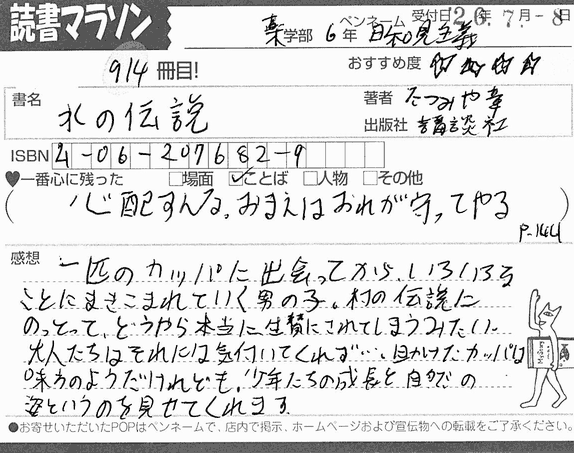 読書マラソン
ペンネーム 受付日 26年7月-8日
薬学部 6年 日和見主義
914冊目!
おすすめ度 ☆☆☆☆
書名 水の伝説
著者 たつみや章
出版社 講談社
ISBN 4-06-207682-9
♥一番心に残った □場面 ☑ことば □人物 □その他
(心配すんな。おまえはおれが守ってやる)
P.144
感想 一匹のカッパに出会ってから、いろいろな
ことにまきこまれていく男の子。村の伝説に
のっとって、どうやら本当に生贄にされてしまうみたい…
大人たちはそれには気付いてくれず…、助けたカッパは
味方のようだけれども。少年たちの成長と自然の
姿というのを見せてくれます。
●お寄せいただいたPOPはペンネームで、店内で掲示、ホームページおよび宣伝物への転載をご了承ください。